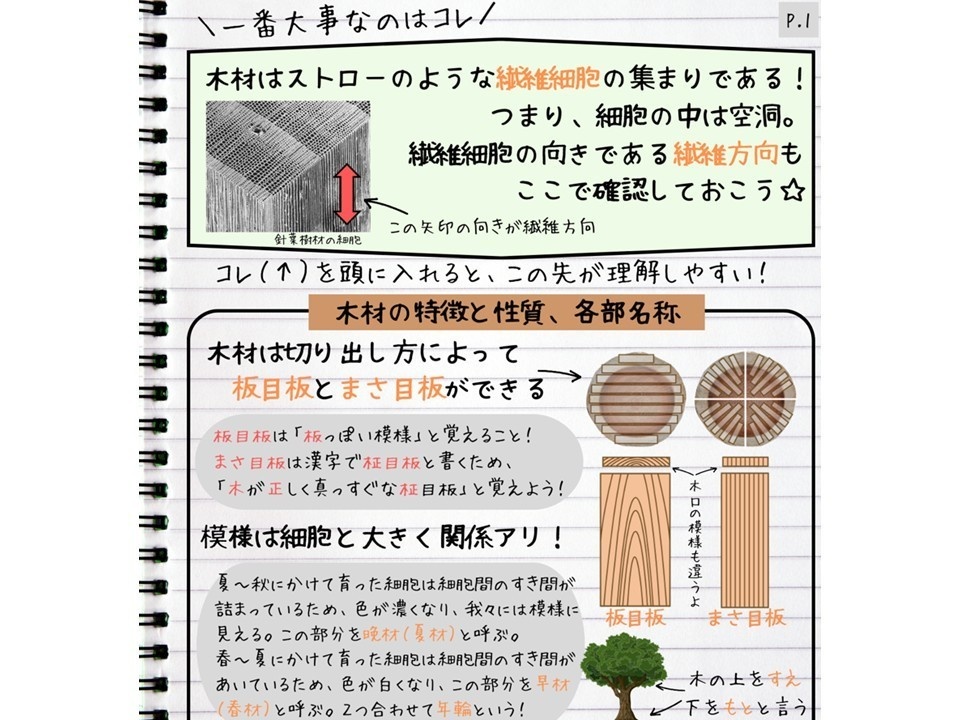 \一番大事なのはコレ/
P.1
木材はストローのような繊維細胞の集まりである!
つまり、細胞の中は空洞。
繊維細胞の向きである繊維方向も
ここで確認しておこう☆
この矢印の向きが繊維方向
針葉樹材の細胞
コレ(↑)を頭に入れると、この先が理解しやすい!
木材の特徴と性質、各部名称
木材は切り出し方によって
板目板とまさ目板ができる
板目板は「板っぽい模様」と覚えること!
まさ目板は漢字で柾目板と書くため、
「木が正しく真っすぐな柾目板」と覚えよう!
木口の模様も違うよ
板目板
まさ目板
模様は細胞と大きく関係アリ!
夏~秋にかけて育った細胞は細胞間のすき間が
詰まっているため、色が濃くなり、我々には模様に
見える。この部分を晩材(夏材)と呼ぶ。
春~夏にかけて育った細胞は細胞間のすき間が
あいているため、色が白くなり、この部分を早材
(春材)と呼ぶ。2つ合わせて年輪という!
木の上をすえ
下をもとと言う